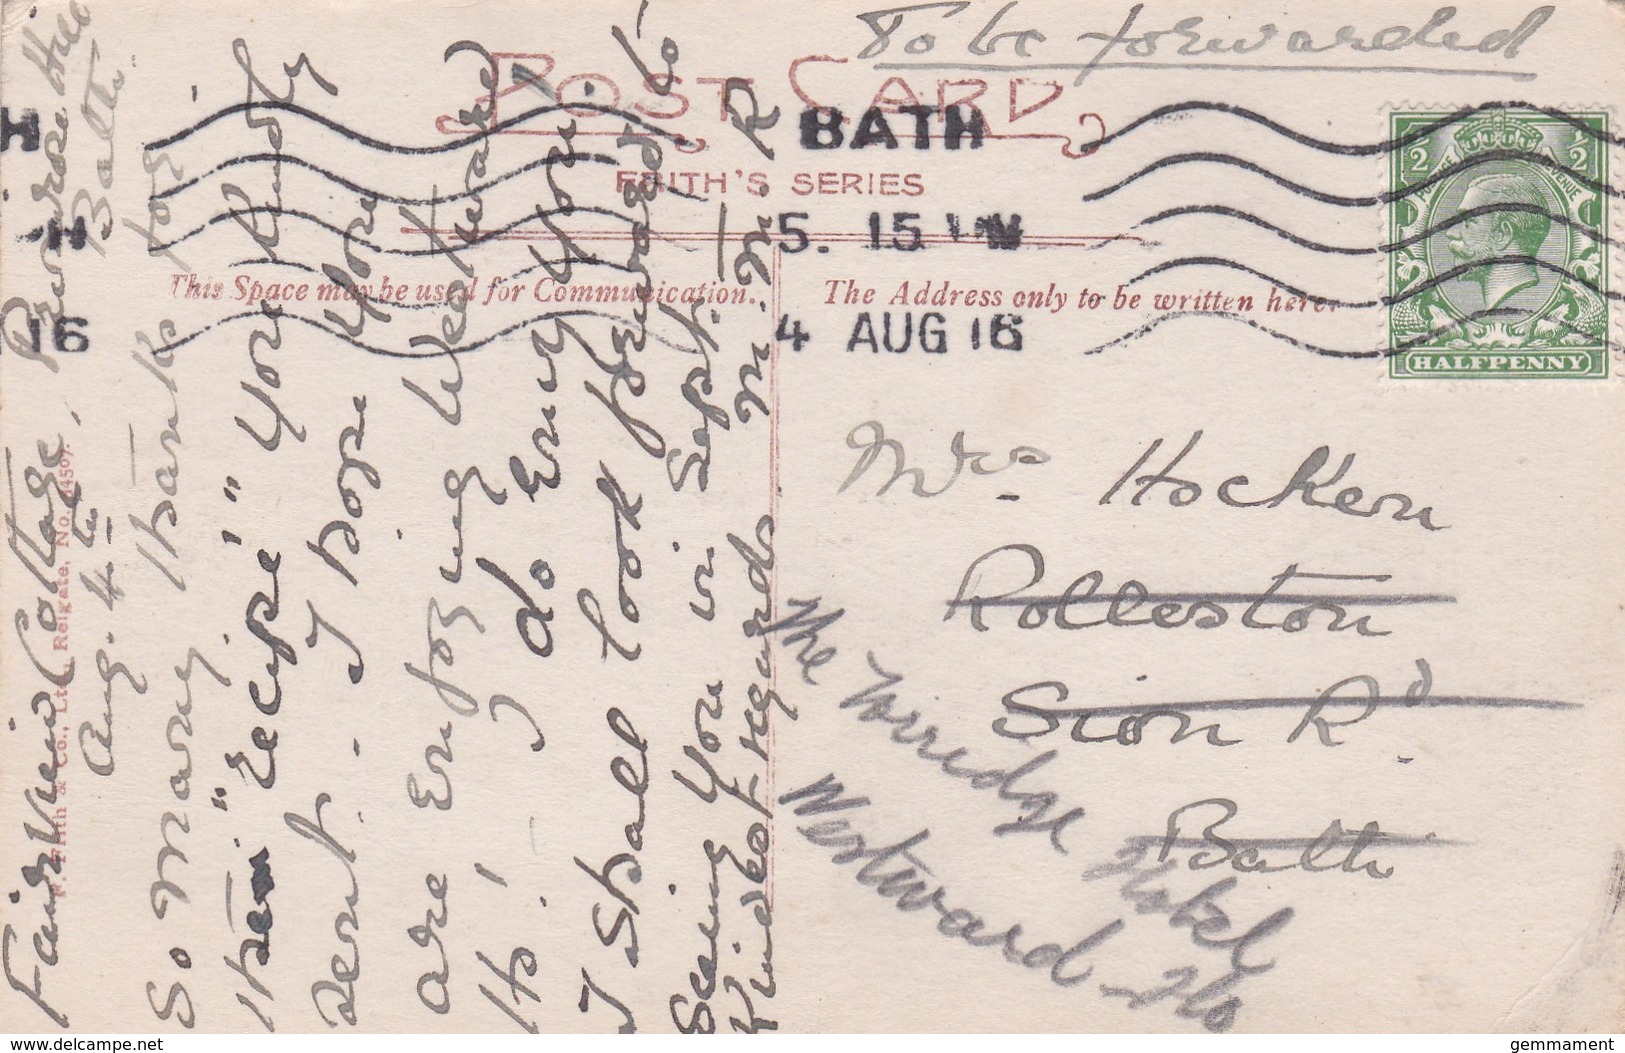 To be forwarded
POST CARD
FRITH'S SERIES
H
BATH
5. 15 PM
16
4 AUG 16
1/2
1/2
POSTAGE
REVENUE
HALFPENNY
This Space may be used for Communication.
The Address only to be written here.
F. Frith & Co., Ltd., Reigate, No. 64507.
Fairview Cottage, Primrose Hill
Bath.
Aug. 4th
So many thanks for
the "recipe" you kindly
sent. I hope you
are enjoying Westward
Ho! I do envy you
I shall look forward to
seeing you in Sept.
Kindest regards M. M. R
Mrs. Hocken
Rolleston
Sion Rd.
Bath
The Torridge Hotel
Westward-Ho
delcampe.net
gemmament